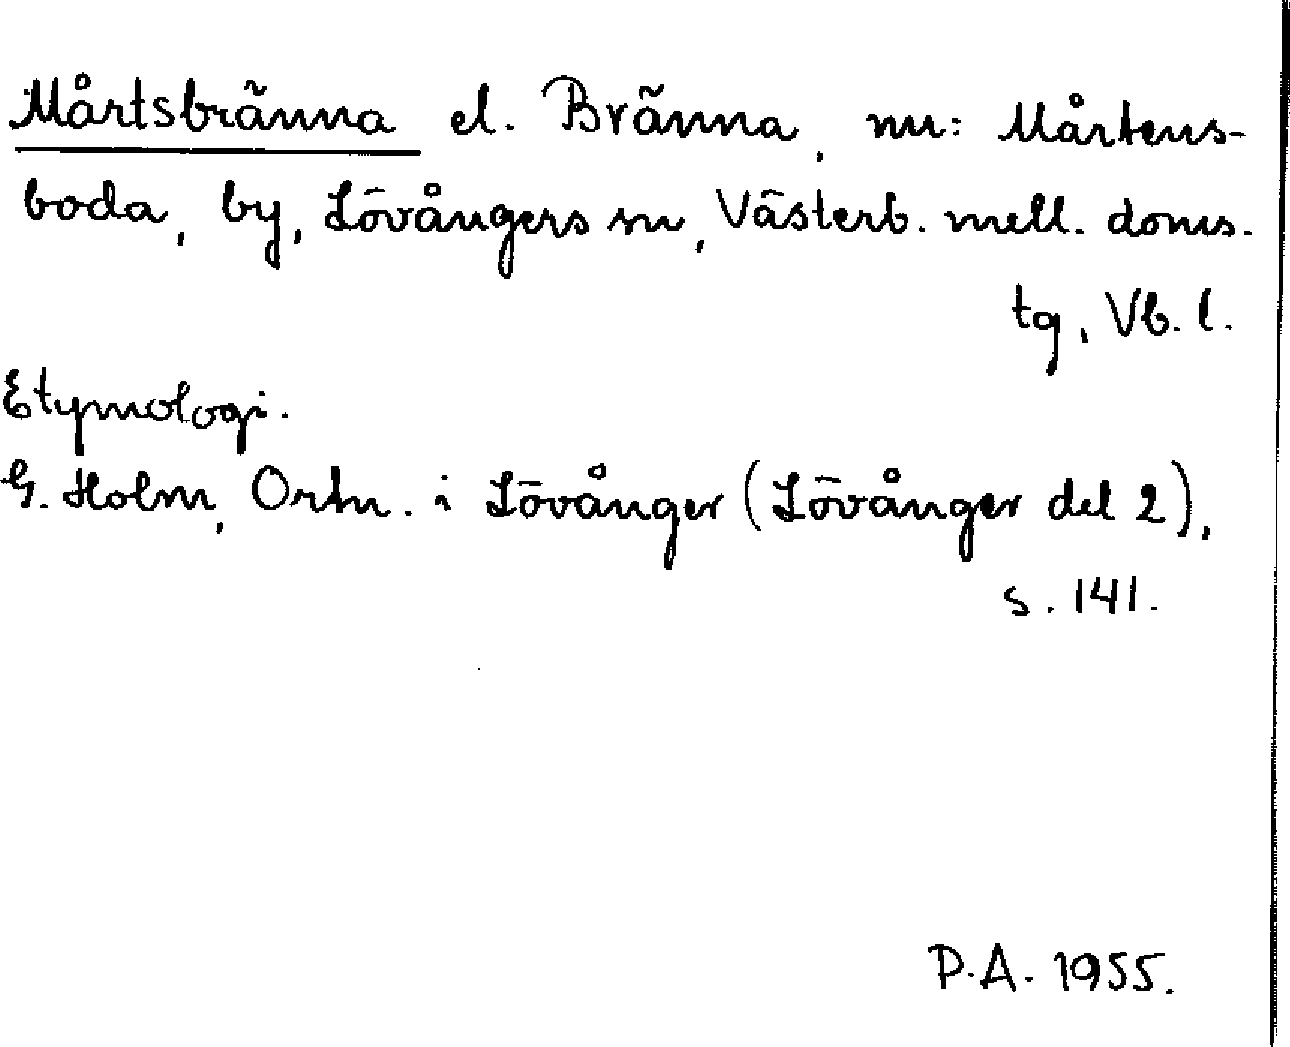 Mårtsbränna el. Bränna, nu: Mårtens-
boda, by, Lövångers sn, Västerb. mell. doms.
tg, Vb. l.
Etymologi.
G. Holm, Ortn. i Lövånger (Lövånger del 2),
s. 141.
P.A. 1955.